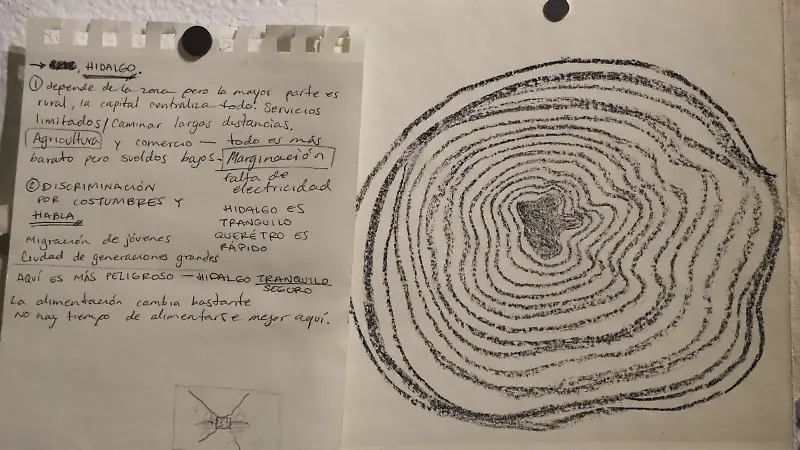 → HIDALGO.
① depende de la zona pero la mayor parte es
rural, la capital centraliza todo. Servicios
limitados / Caminar largas distancias,
Agricultura y comercio — todo es más
barato pero sueldos bajos - Marginación
falta de
electricidad
② DISCRIMINACIÓN
POR COSTUMBRES Y
HABLA
HIDALGO ES
TRANQUILO
QUERÉTRO ES
RÁPIDO
Migración de jóvenes
Ciudad de generaciones grandes
AQUÍ ES MÁS PELIGROSO — HIDALGO TRANQUILO
SEGURO
La alimentación cambia bastante
NO hay tiempo de alimentarse mejor aquí.